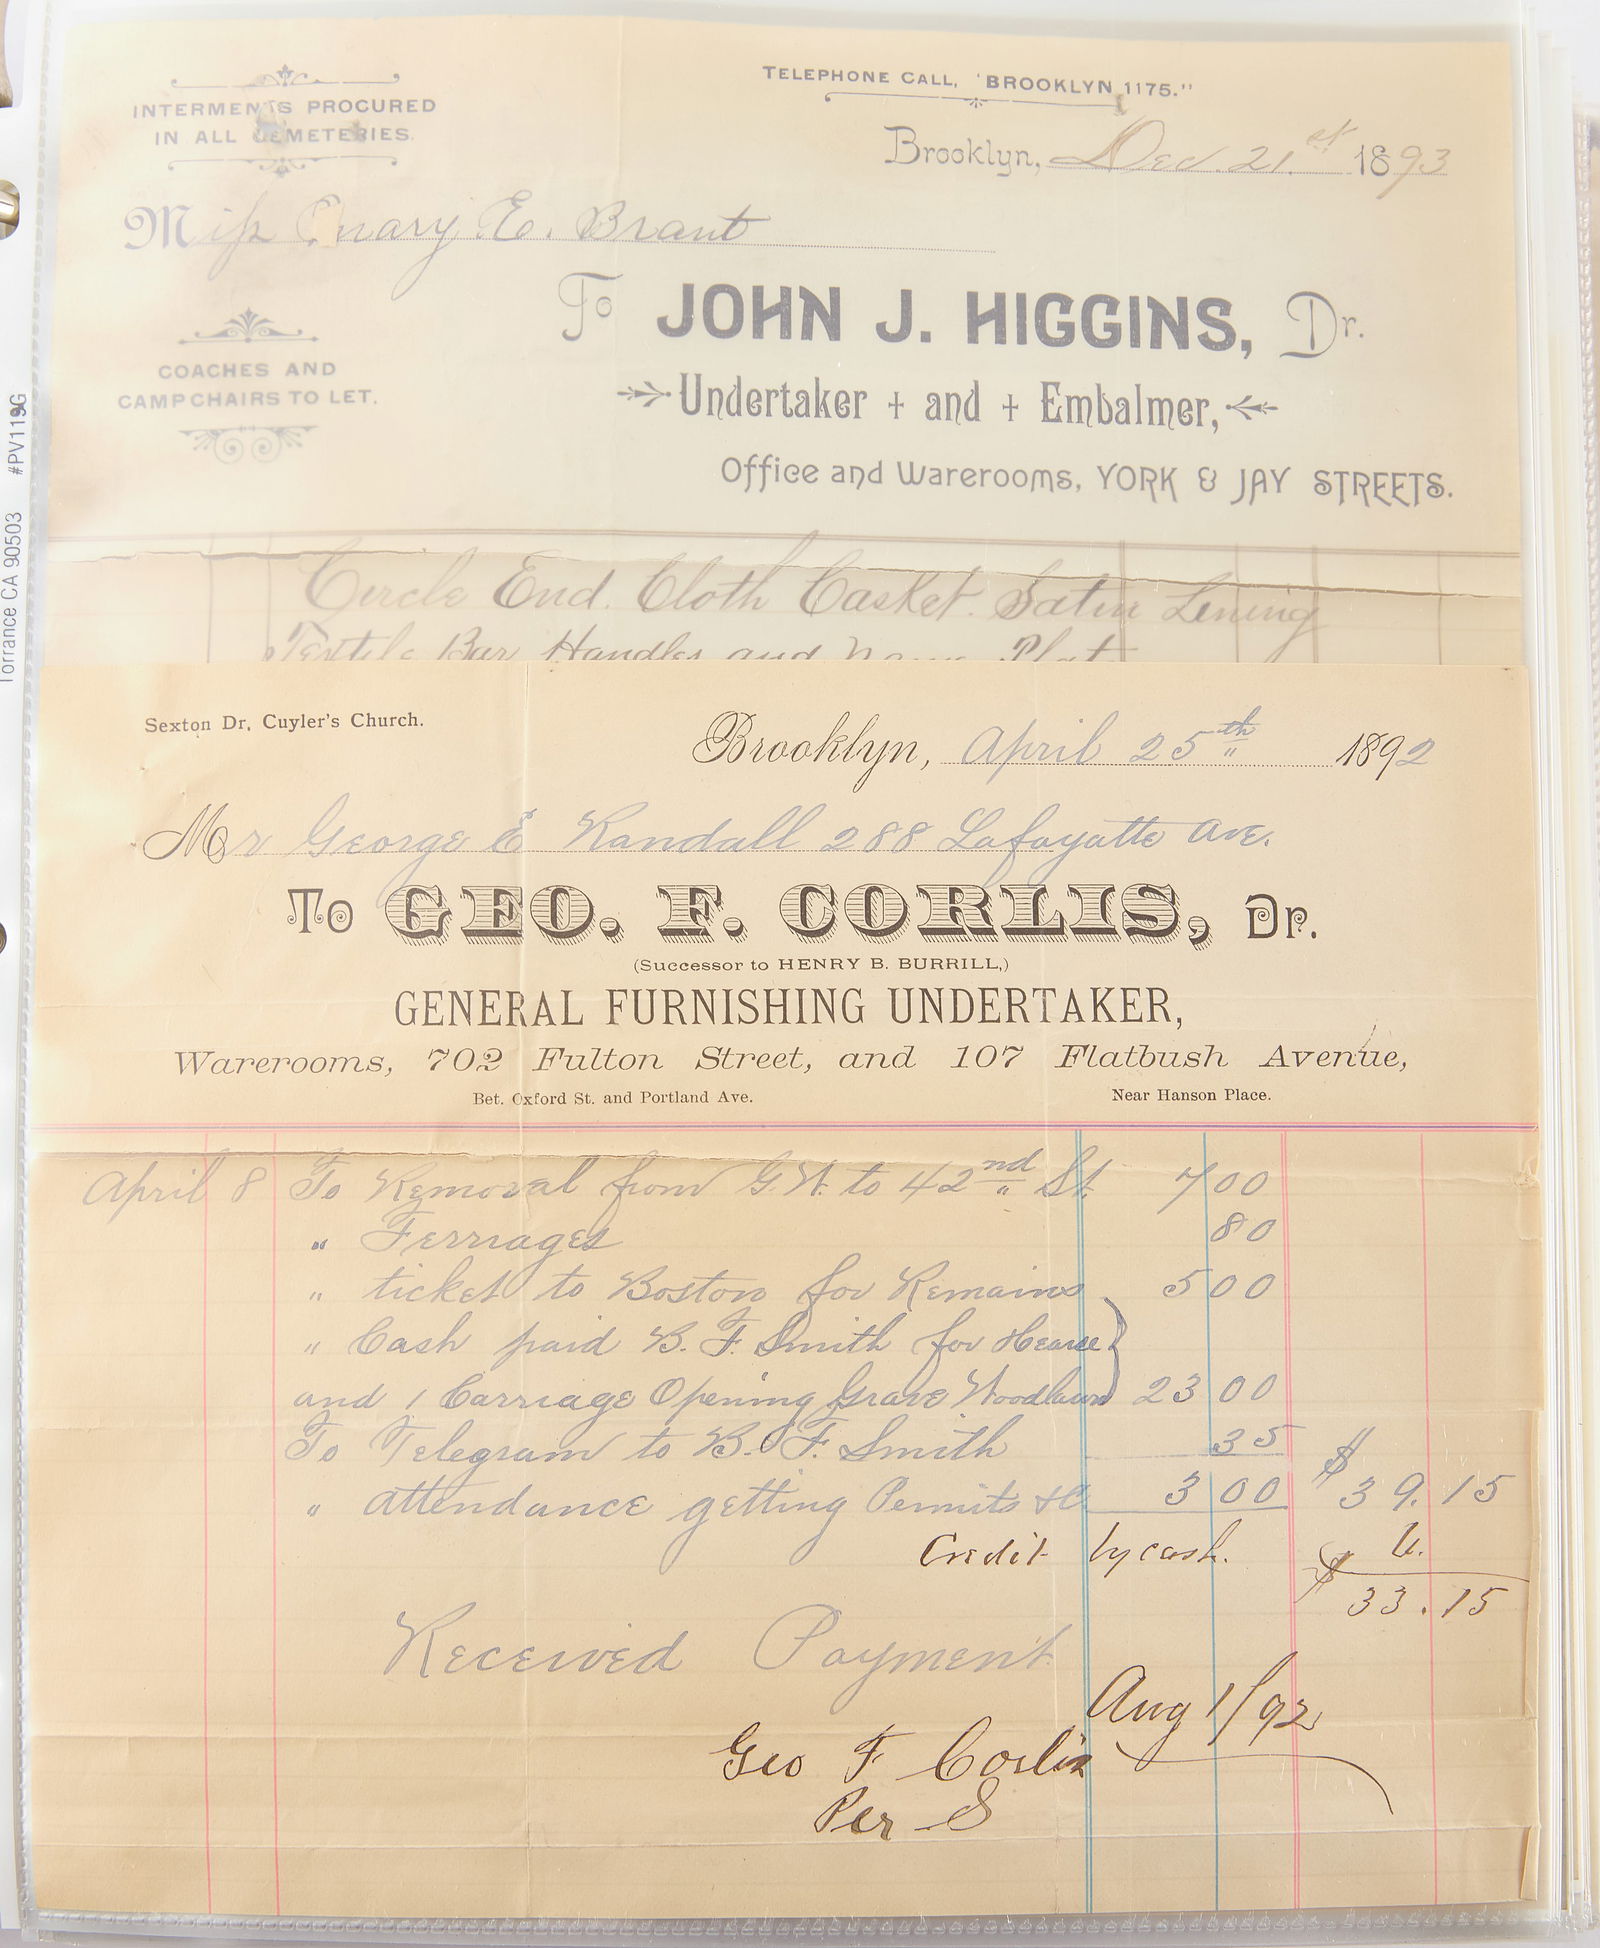 INTERMENTS PROCURED
IN ALL CEMETERIES.
TELEPHONE CALL, 'BROOKLYN 1175."
Brooklyn, Dec. 21.st 1893
Miss Mary E. Brant
COACHES AND
CAMPCHAIRS TO LET.
To JOHN J. HIGGINS, Dr.
Undertaker + and + Embalmer,
Office and Warerooms, YORK & JAY STREETS.
Circle End. Cloth Casket. Satin Lining
Bar Handles and Name Plat
Sexton Dr, Cuyler's Church.
Brooklyn, April 25th 1892
Mr George E Randall 288 Lafayatte ave.
To GEO. F. CORLIS, Dr.
(Successor to HENRY B. BURRILL,)
GENERAL FURNISHING UNDERTAKER,
Warerooms, 702 Fulton Street, and 107 Flatbush Avenue,
Bet. Oxford St. and Portland Ave. Near Hanson Place.
April 8 To Removal from G.W. to 42nd St. 7 00
" Ferriages 80
" ticket to Boston for Remains 5 00
" Cash paid B. F. Smith for Hearse
and 1 Carriage Opening Grave Woodlawn 23 00
To Telegram to B. F. Smith 35
" attendance getting Permits &c 3 00 $39.15
Credit by cash. 6.
$33.15
Received Payment
Aug 1/92
Geo F Corlis
Per S
#PV119G
Torrance CA 90503